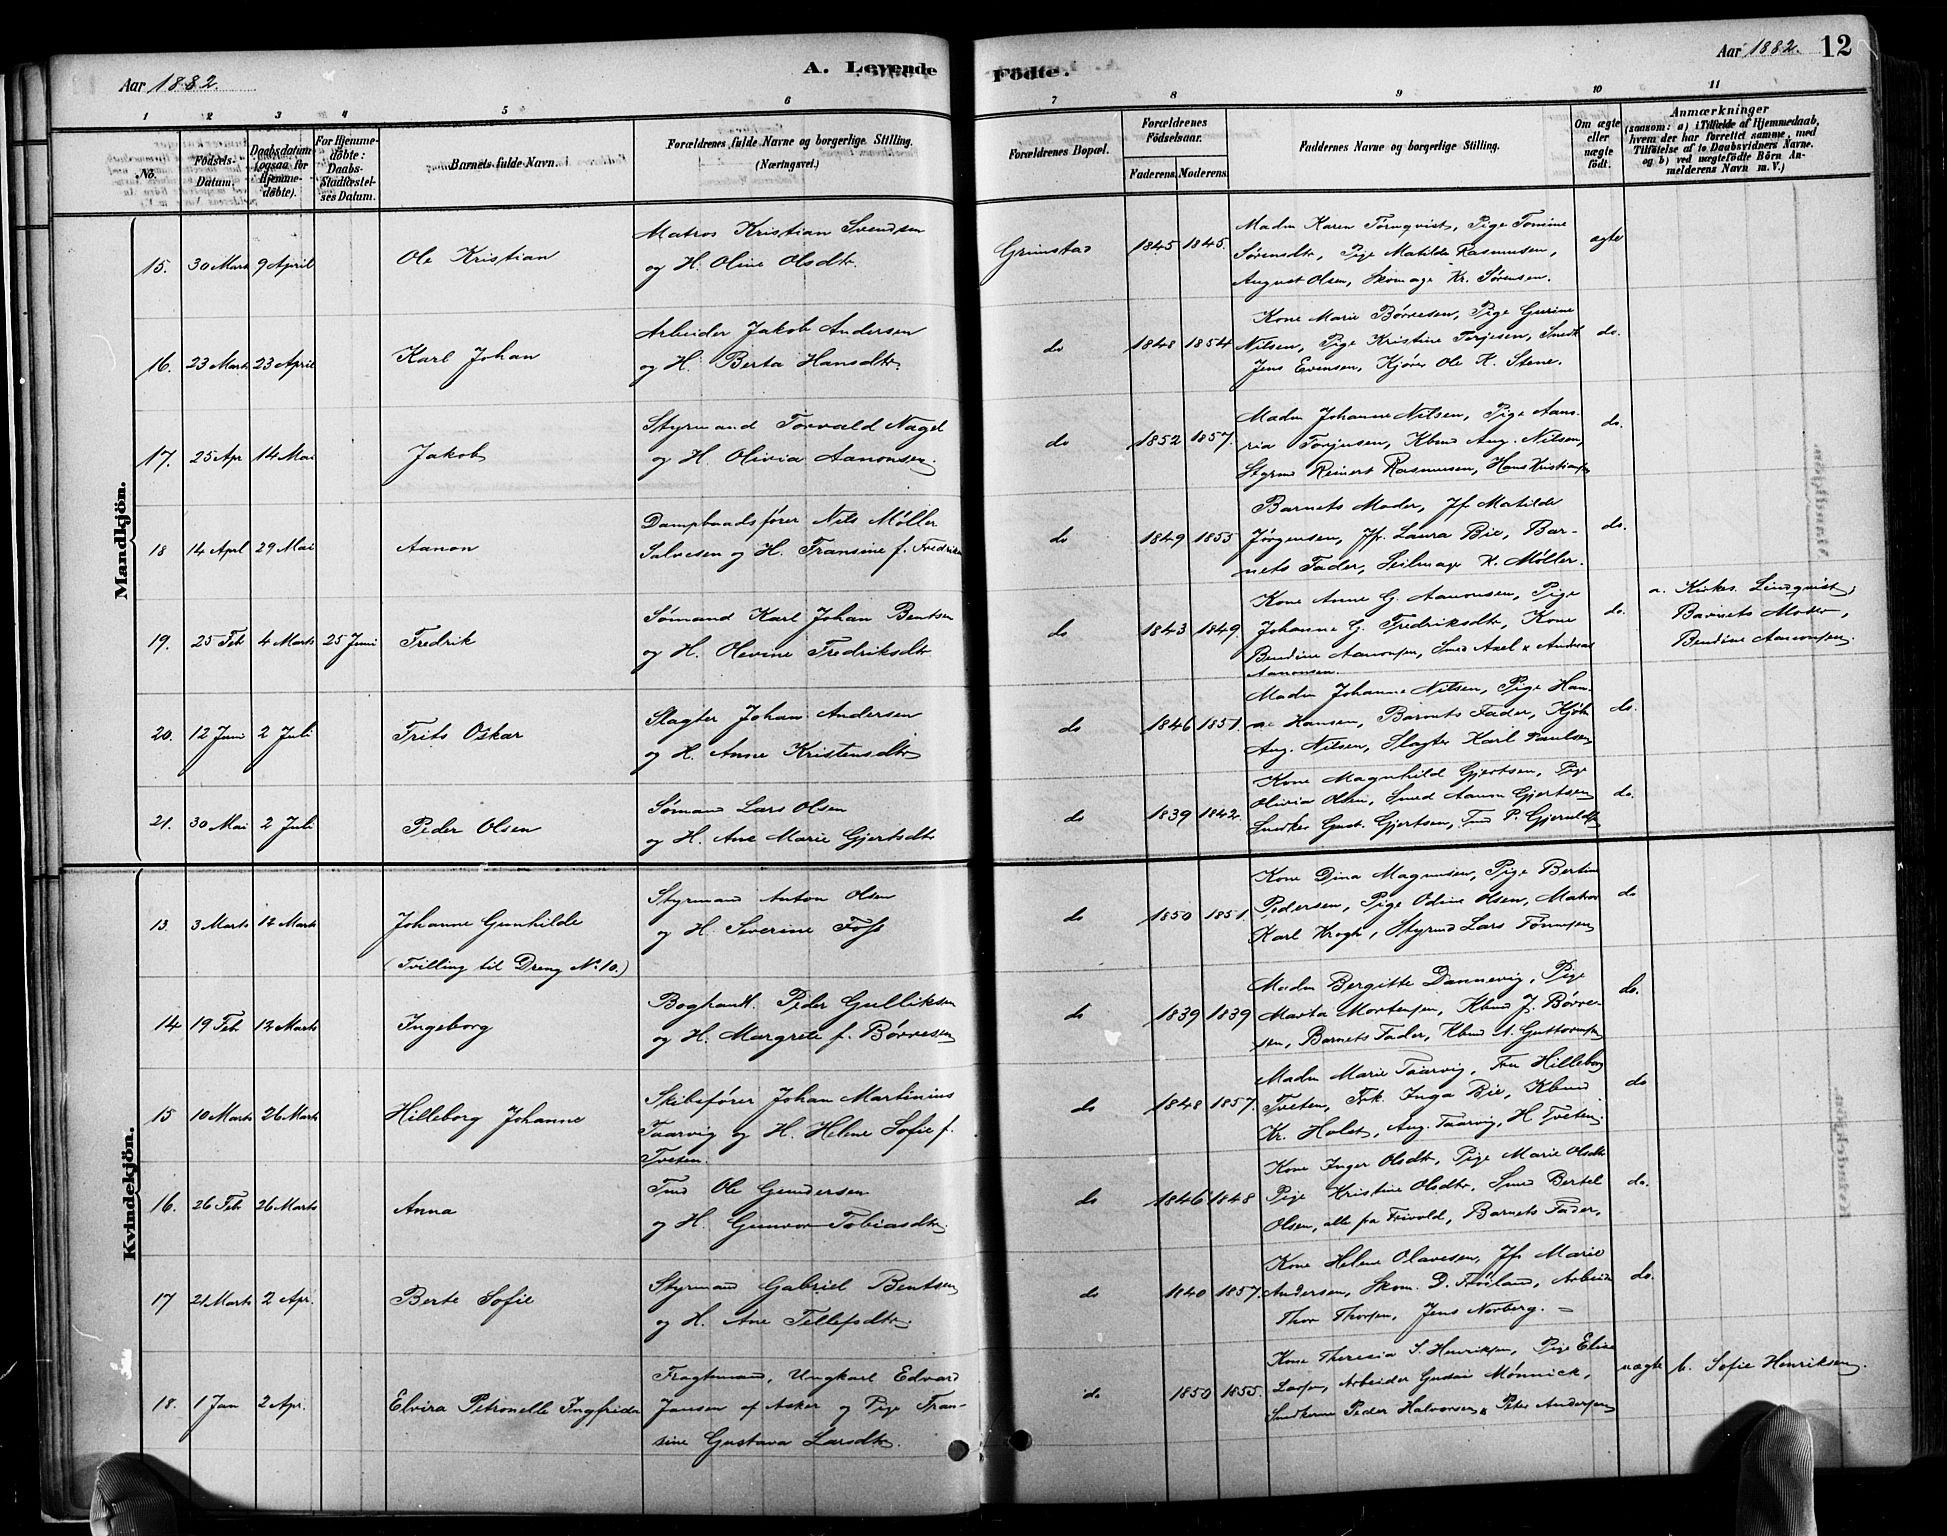 Aar 1882.
A. Levende Födte.
Aar 1882. 12
1 2 3 4 5 6 7 8 9 10 11
No.
Födsels-Datum.
Daabsdatum (ogsaa for Hjemmedöbte).
For Hjemmedöbte: Daabs-Stadfæstelses Datum.
Barnets fulde Navn.
Forældrenes fulde Navne og borgerlige Stilling. (Næringsvei.)
Forældrenes Bopæl.
Forældrenes Födselsaar.
Faderens. Moderens.
Faddernes Navne og borgerlige Stilling.
Om ægte eller uægte født.
Anmærkninger
(saasom: a) i Tilfælde af Hjemmedaab, hvem der har forrettet samme, med Tilföielse af to Daabsvidners Navne. og b) ved uægtefödte Börn Anmelderens Navn m. V.)
Mandkjön.
15. 30 Marts 9 April Ole Kristian
Matros Kristian Svendsen
og H. Oline Olsdtr
Grimstad 1845 1845.
Madm Karen Törnqvist, Pige Tomine
Sørensdtr, Pige Matilde Rasmussen,
August Olsen, Skomage Kr. Sørensen.
ægte
16. 23 Marts 23 April Karl Johan
Arbeider Jakob Andersen
og H. Berta Hansdtr.
do 1848 1854
Kone Marie Börresen, Pige Gurine
Nilsen, Pige Kristine Terjesen, Smedk
Jens Evensen, Kjörer Ole K. Stene.
do.
17. 25 Apr 14 Mai Jakob
Styrmand Torvald Nagel
og H. Olivia Aanonsen.
do 1852 1857.
Madm Johanne Nilsen, Pige Aans-
ria Torjusen, Kbmd Aug. Nilsen,
Styrmd Reinert Rasmussen, Hans Kristiansen
do.
18 14 Apl 29 Mai Aanon
Dampbaadsfører Nils Møller
Salvesen og H. Fransine f. Fredriksen
do 1849 1853
Barnets Moder, Jf. Matilde
Jørgensen, Jf. Laura Bie, Bar-
nets Fader, Seilmage K. Møller.
do.
19. 25 Feb 4 Marts 25 Juni Fredrik
Sømand Karl Johan Bentsen
og H. Olevine Fredriksdtr
do 1843 1849.
Kone Anne G. Aanonsen, Pige
Johanne G. Fredriksdtr, Kone
Bendine Aanonsen, Smed Axel & Andreas
Aanonsen.
do.
a. Kirkes. Lindqvist,
Barnets Moder,
Bendine Aanonsen.
20. 12 Juni 2 Juli Frits Oskar
Slagter Johan Andersen
og H. Anne Kristensdtr
do 1846 1851.
Madm Johanne Nilsen, Pige Han-
na Hansen, Barnets Fader, Kjöb
Aug. Nilsen, Slagter Karl Paulsen
do.
21. 30 Mai 2 Juli Peder Olsen
Sømand Lars Olsen
og H. Ane Marie Gjertsdtr
do 1839 1842.
Kone Magnhild Gjertsen, Pige
Olivia Olsen, Smed Aanon Gjertsen
Snedker Gust. Gjertsen, Tmd P. Gjeruldsen
do.
Kvindekjön.
13. 3 Marts 12 Marts Johanne Gunhilde
(Tvilling til Dreng No. 10.)
Styrmand Anton Olsen
og H. Severine Foss
do 1850 1851.
Kone Dina Magnusen, Pige Bertine
Pedersen, Pige Odine Olsen, Matros
Karl Krogh, Styrmd Lars Tönnesen
do
14 19 Feb 12 Marts Ingeborg
Boghandl. Peder Gulliksen
og H. Margrete f. Börresen
do 1839 1839
Madm Bergitte Dannevig, Pige
Marta Mortensen, Kbmd J. Börre-
sen, Barnets Fader, Kbmd A. Guttormsen
do.
15 10 Marts 26 Marts Hilleborg Johanne
Skibsfører Johan Martinius
Taarvig og H. Helene Sofie f.
Tveten.
do 1848 1857.
Madm Marie Taarvig, Fru Hilleborg
Tveten, Frk. Inga Bie, Kbmd
Kr. Holst, Aug. Taarvig, H. Tveten.
do
16. 26 Feb 26 Marts Anna
Tmd Ole Gundersen
og H. Gunvor Tobiasdtr.
do 1846 1848
Kone Inger Olsdtr, Pige Marie Olsdtr
Pige Kristine Olsdtr, Smed Bertel
Olsen, alle fra Frivold, Barnets Fader.
do.
17 21 Marts 2 Apr. Berte Sofie
Styrmand Gabriel Bentsen
og H. Ane Tellefsdtr.
do 1840 1857.
Kone Helene Olavesen, Jf Marie
Andersen, Skom. D. Fröiland, Arbeider
Thor Thorsen, Jens Norberg.
do.
18. 1 Jan 2 Apr. Elvira Petronelle Ingfrida
Fragtemand, Ungkarl Edvard
Jansen af Asker og Pige Fran-
sine Gustava Larsdtr.
do 1850 1855.
Kone Theresia S. Henriksen, Pige Elise
Larsen, Arbeider Gustav Mønnick,
Snedkerne Peder Halvorsen & Peter Andersen
uægte b. Sofie Henriksen.